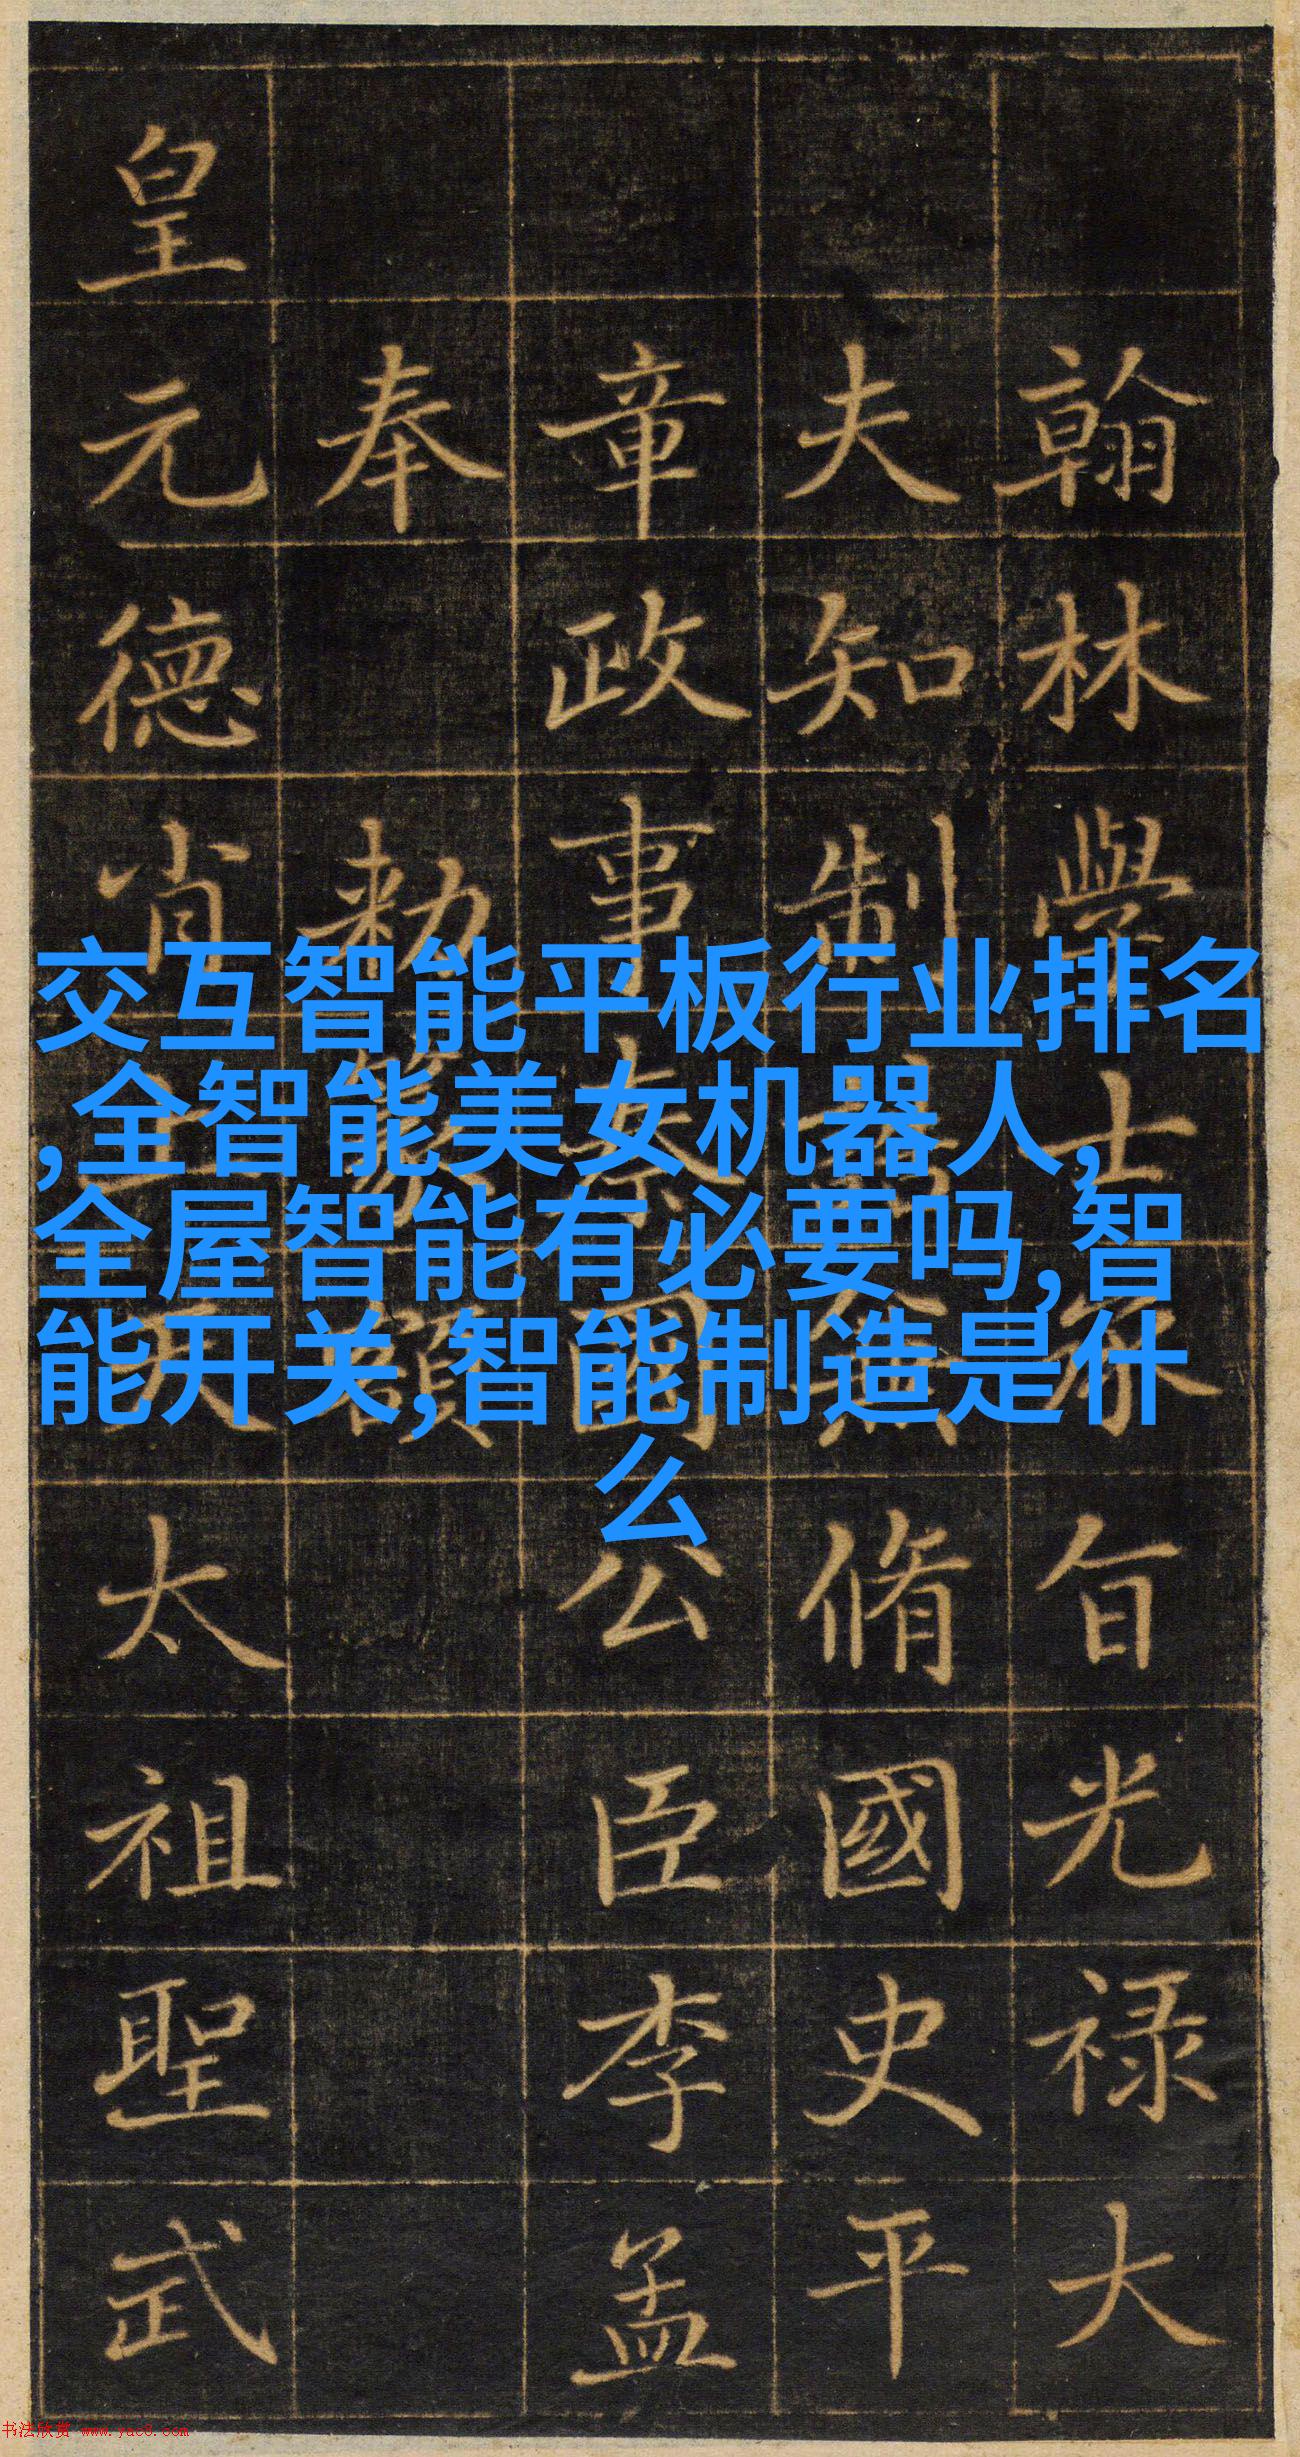 翰林學士承旨光禄大
夫知制誥兼脩國史平
章政事秦國公臣李孟
奉勅篆額
皇元德肖上天太祖聖武
交互智能平板行业排名
,全智能美女机器人,
全屋智能有必要吗,智
能开关,智能制造是什
么
书法欣赏 www.yac8.com